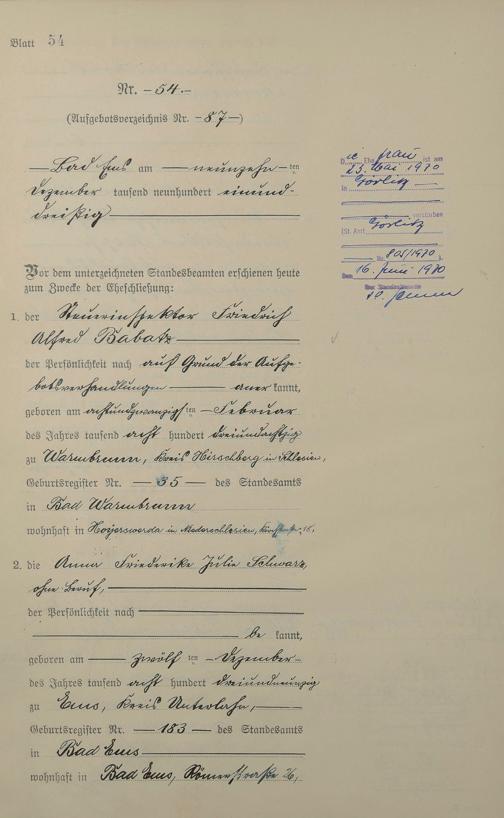 Blatt 54
Nr. -54.-
(Aufgebotsverzeichnis Nr. -87-)
Bad Ems am neunzehn ten
Dezember tausend neunhundert einund-
dreißig
Vor dem unterzeichneten Standesbeamten erschienen heute
zum Zwecke der Eheschließung:
1. der Steuerinspektor Friedrich
Alfred Babatz
der Persönlichkeit nach auf Grund der Aufge-
botsverhandlungen aner kannt,
geboren am achtundzwanzigs ten Februar
des Jahres tausend acht hundert dreiundachtzig
zu Warmbrunn, Kreis Hirschberg in Schlesien,
Geburtsregister Nr. 35 des Standesamts
in Bad Warmbrunn
wohnhaft in Hoyerswerda in Niederschlesien,
2. die Anna Friederike Julie Schwarz,
ohne Beruf,
der Persönlichkeit nach
be kannt,
geboren am zwölf ten Dezember
des Jahres tausend acht hundert dreiundneunzig
zu Ems, Kreis Unterlahn,
Geburtsregister Nr. 183 des Standesamts
in Bad Ems
wohnhaft in Bad Ems, Römerstraße 26,
D ie Ehe frau ist am
23. Mai 1970
in Görlitz
verstorben
(St. Amt Görlitz
Nr. 805/1970)
Den 16. Juni 1970
Der Standesbeamte